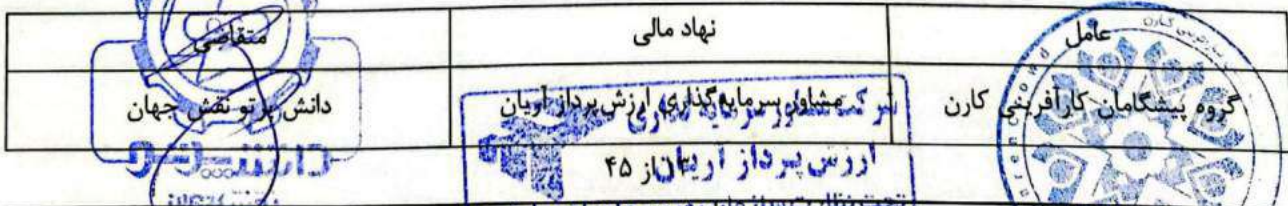 عامل نهاد مالی متقاضی
گروه پیشگامان کارآفرینی کارن مشاور سرمایه گذاری ارزش پرداز آریان دانش پرتو نقش جهان
ارزش پرداز آریان
از ۴۵